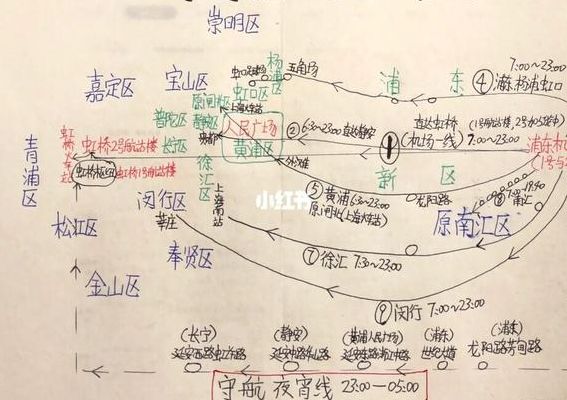 崇明区
嘉定区
宝山区
杨浦区
虹口区
虹口足球场
五角场
7:00~23:00
④浦东.杨浦虹口
浦东
新区
原闸北区
上海火车站
普陀区
静安区
长宁区
人民广场
黄浦区
外滩
徐汇区
上海南站
②6:30~23:00 直达静安
直达虹桥
①(机场一线)
7:00~23:00
青浦区
虹桥火车站
虹桥2号航站楼
虹桥1号航站楼
⑤黄浦6:30~23:00
原闸北(上海火车站)
龙阳路
南汇
原南汇区
闵行区
莘庄
松江区
奉贤区
金山区
小红书
⑦徐汇 7:30~23:00
⑨闵行 7:00~23:00
(长宁)
延安西路虹许路
(静安)
延安中路华山路
(黄浦人民广场)
延安东路浙江中路
(浦东)
世纪大道
(浦东)
龙阳路芳甸路
守航 夜宵线 23:00—05:00